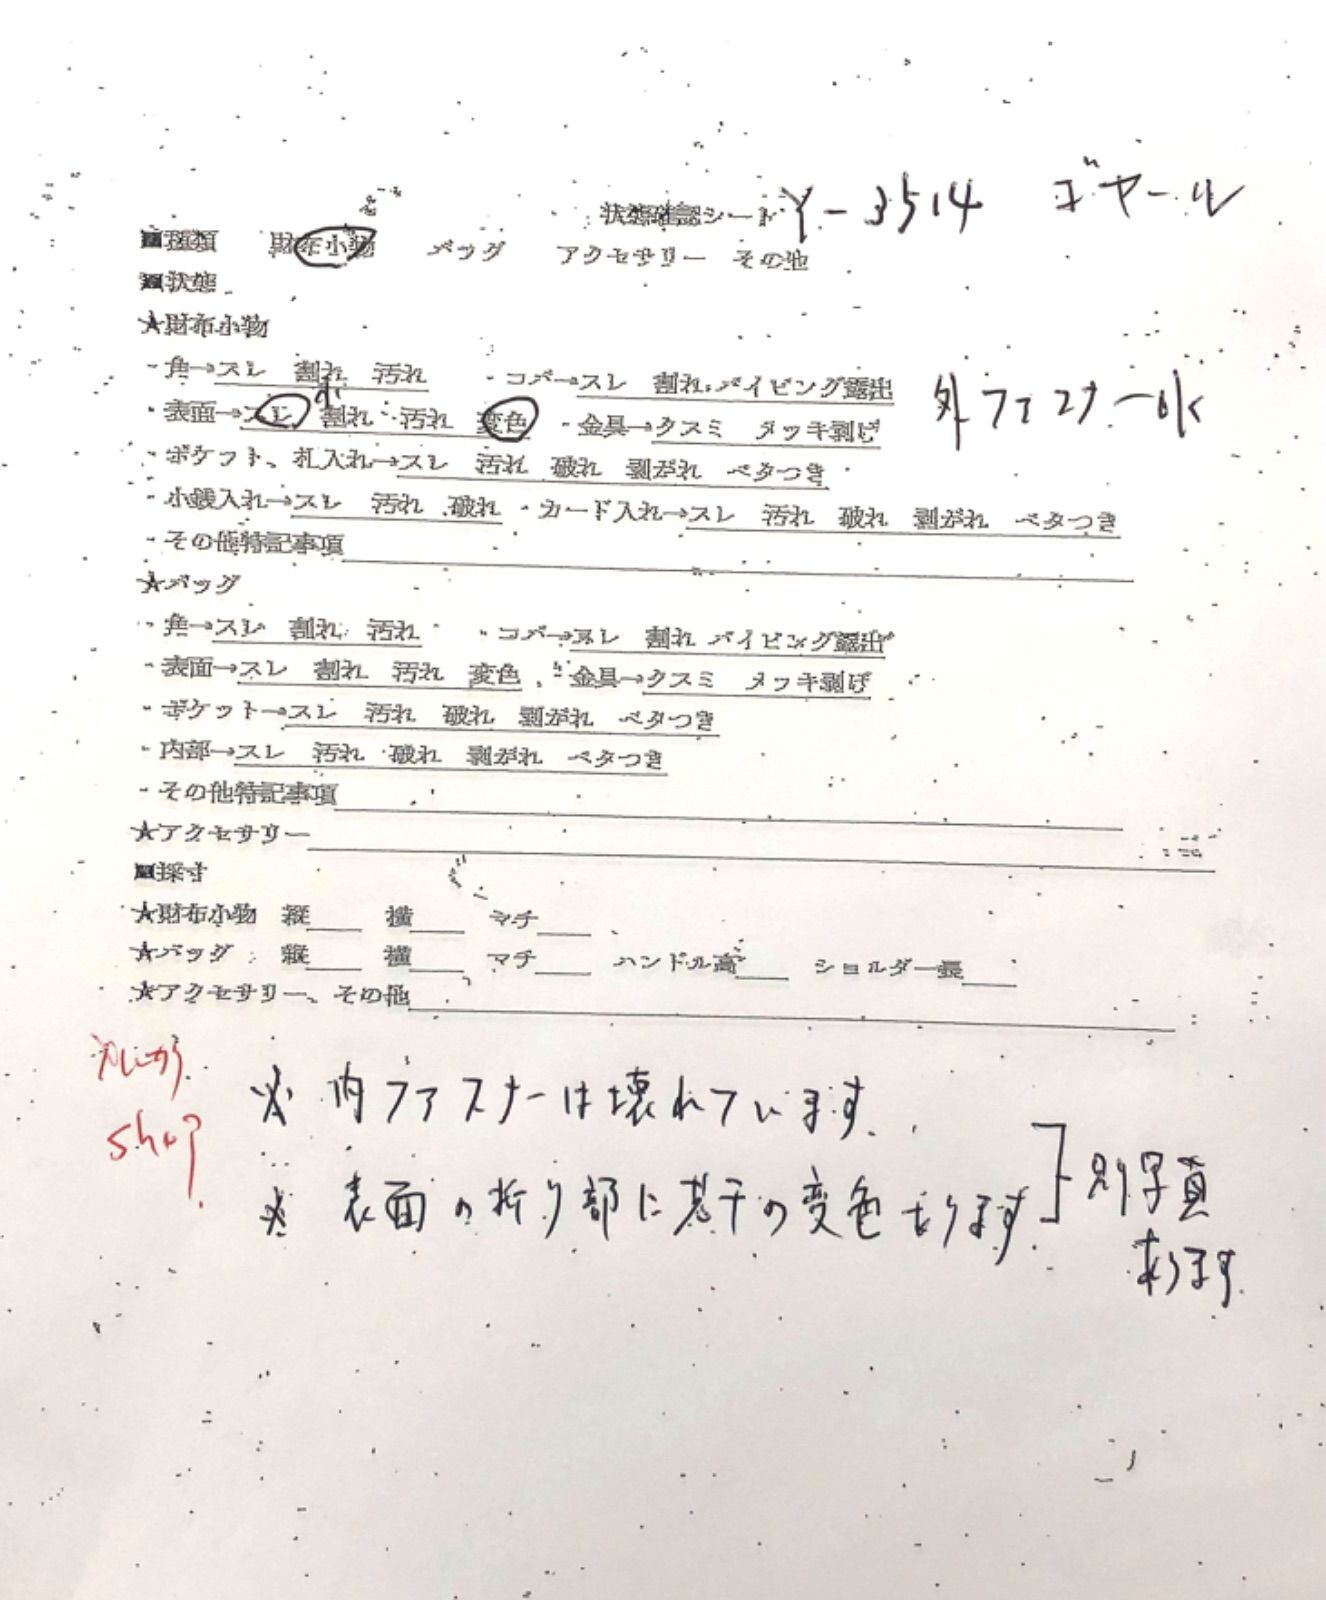 状態確認シート Y-3514 ゴヤール
■種類 財布小物 バッグ アクセサリー その他
■状態
★財布小物
・角→スレ 割れ 汚れ ・コバ→スレ 割れ パイピング露出
・表面→スレ 小 割れ 汚れ 変色 ・金具→クスミ メッキ剥げ 外ファスナーok
・ポケット、札入れ→スレ 汚れ 破れ 剥がれ ベタつき
・小銭入れ→スレ 汚れ 破れ ・カード入れ→スレ 汚れ 破れ 剥がれ ベタつき
・その他特記事項
★バッグ
・角→スレ 割れ 汚れ ・コバ→スレ 割れ パイピング露出
・表面→スレ 割れ 汚れ 変色 ・金具→クスミ メッキ剥げ
・ポケット→スレ 汚れ 破れ 剥がれ ベタつき
・内部→スレ 汚れ 破れ 剥がれ ベタつき
・その他特記事項
★アクセサリー
■採寸
★財布小物 縦 横 マチ
★バッグ 縦 横 マチ ハンドル高 ショルダー長
★アクセサリー、その他
shop
※ 内ファスナーは壊れています。
※ 表面の折り部に若干の変色あります。
別写真
あります。